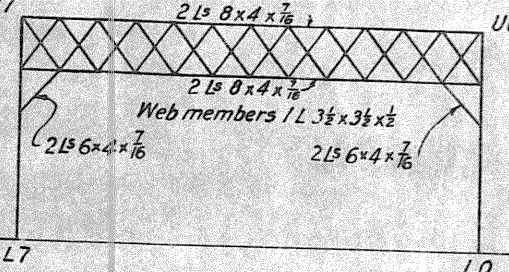 2 Ls 8 x 4 x 7/16
2 Ls 8 x 4 x 7/16
Web members 1 L 3 1/2 x 3 1/2 x 1/2
2 Ls 6 x 4 x 7/16
2 Ls 6 x 4 x 7/16
L7
L0